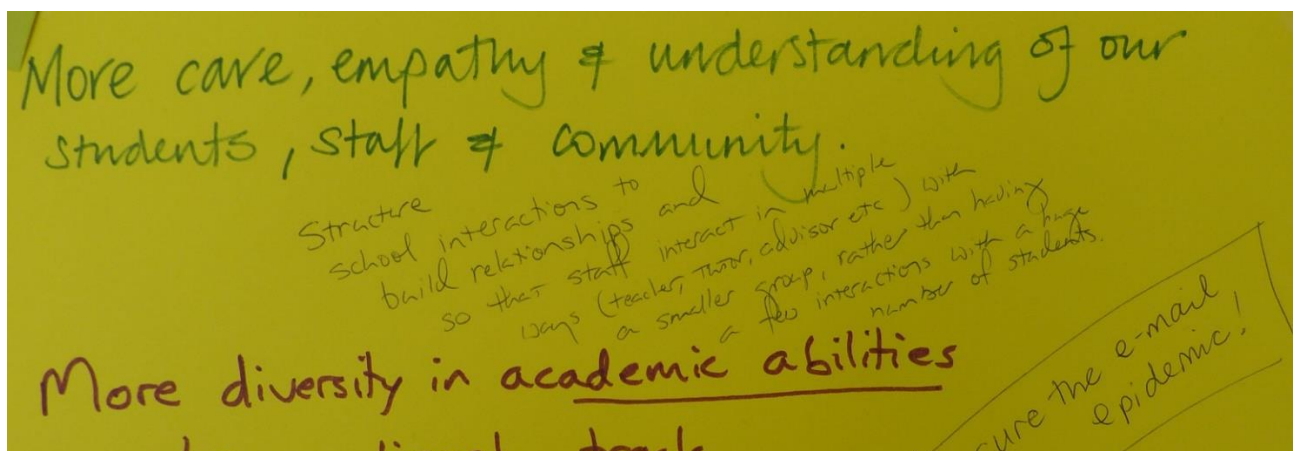 More care, empathy & understanding of our
students, staff & community.
Structure
school interactions to
build relationships and
so that staff interact in multiple
ways (teacher, tutor, advisor etc) with
a smaller group, rather than having
a few interactions with a huge
number of students.
More diversity in academic abilities
cure the e-mail
epidemic!